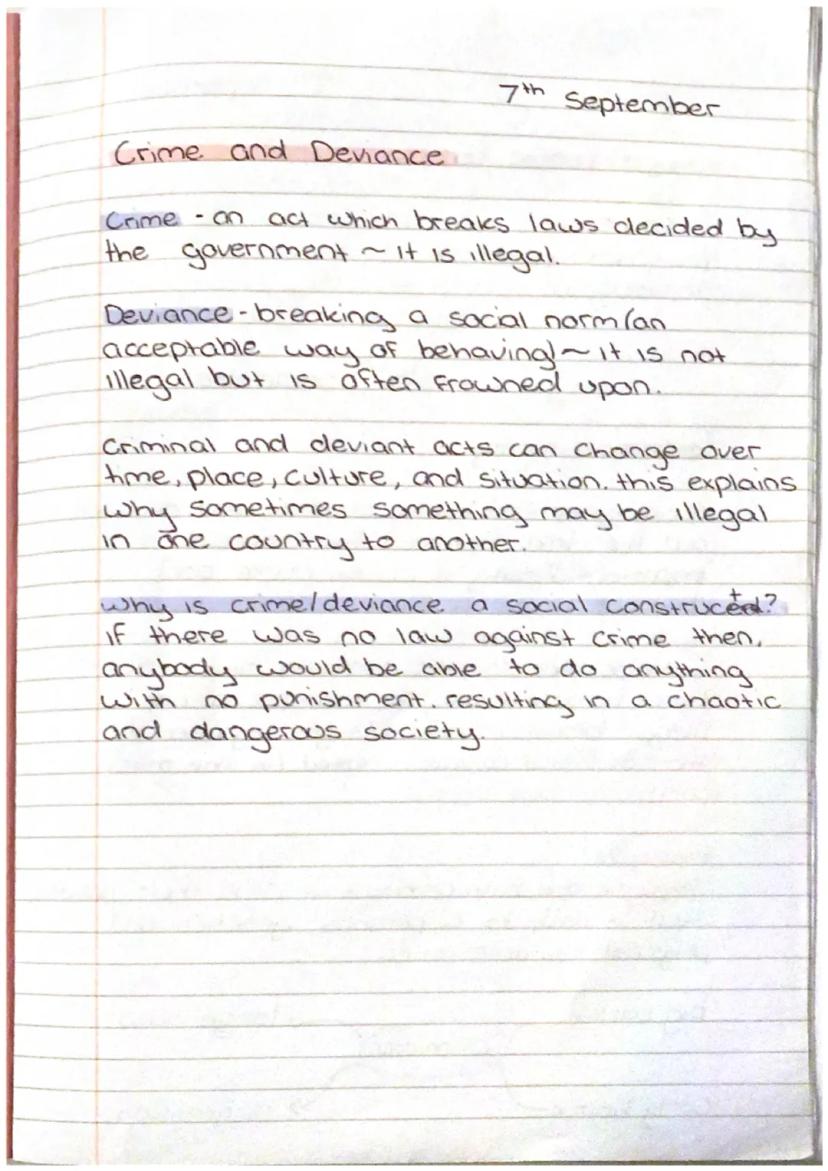 7th September
Crime and Deviance
Crime - an act which breaks laws decided by
the government ~ it is illegal.
Deviance - breaking a social norm (an
acceptable way of behaving) ~ it is not
illegal but is often frowned upon.
Criminal and deviant acts can change over
time, place, culture, and situation. this explains
why sometimes something may be illegal
in one country to another.
Why is crime/deviance a social construct?
if there was no law against crime then,
anybody would be able to do anything
with no punishment. resulting in a chaotic
and dangerous society.